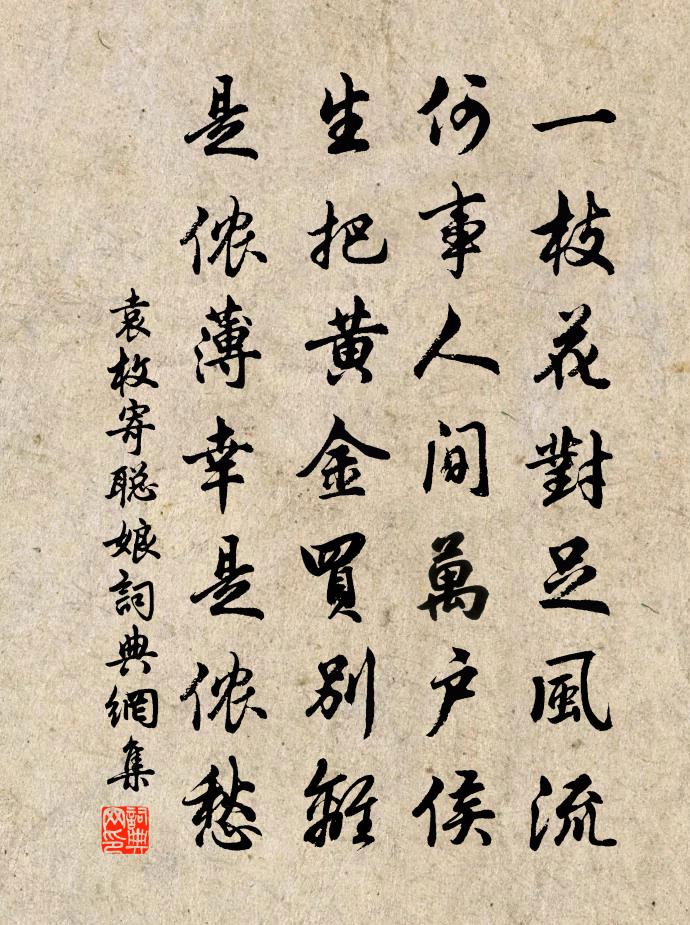 一枝花對足風流
何事人间萬户侯
生把黄金買别離
是侬薄幸是侬愁
袁枚寄聪娘詞典網集
詞典網印